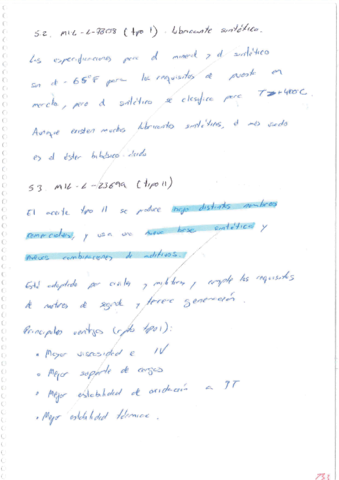 5.2. MIL-L-7808 (tipo I). Lubricante sintético.
Las especificaciones para el mineral y el sintético
son a -65°F para los requisitos de puesta en
marcha, pero el sintético se clasifica para T
Aunque existen muchos lubricantes sintéticos, el más usado
es el éster
5.3 MIL-L-23699 (tipo II)
El aceite tipo II se produce bajo distintos nombres
comerciales, y usa una nueva base sintética y
nuevas combinaciones de aditivos.
Está adoptado por civiles y militares y cumple los requisitos
de motores de segunda y tercera generación.
Principales ventajas (rpto tipo I):
• Mayor viscosidad e IV
• Mejor soporte de cargas
• Mejor estabilidad de oxidación a ↑T
• Mejor estabilidad térmica.